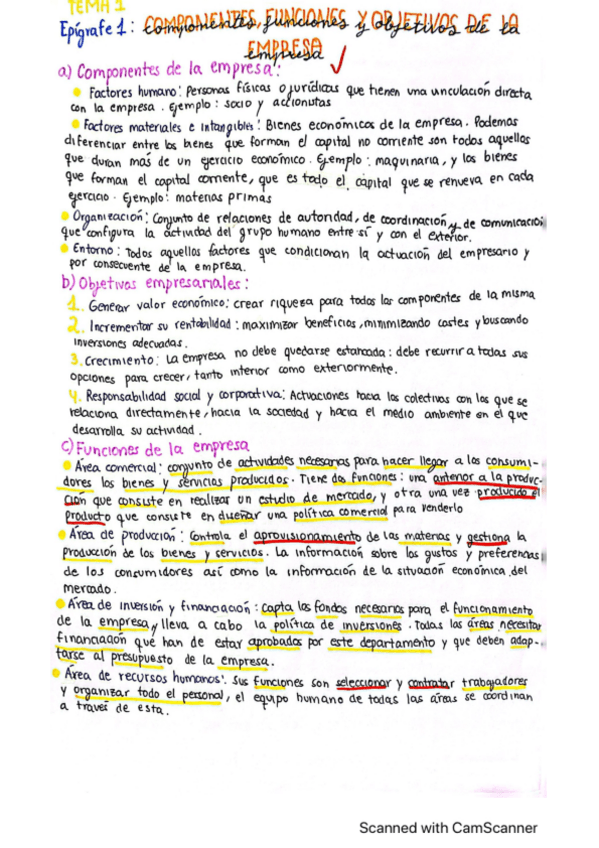 TEMA 1
Epígrafe 1: COMPONENTES, FUNCIONES Y OBJETIVOS DE LA
EMPRESA
a) Componentes de la empresa:
Factores humano: Personas físicas o jurídicas que tienen una vinculación directa
con la empresa. Ejemplo: socio y accionistas
Factores materiales e intangibles: Bienes económicos de la empresa. Podemos
diferenciar entre los bienes que forman el capital no corriente son todos aquellos
que duran más de un ejercicio económico. Ejemplo: maquinaria, y los bienes
que forman el capital corriente, que es todo el capital que se renueva en cada
ejercicio. Ejemplo: materias primas
Organización: Conjunto de relaciones de autoridad, de coordinación y de comunicación
que configura la actividad del grupo humano entre sí y con el exterior.
Entorno: Todos aquellos factores que condicionan la actuación del empresario y
por consecuente de la empresa.
b) Objetivos empresariales:
1. Generar valor económico: crear riqueza para todos los componentes de la misma
2. Incrementar su rentabilidad: maximizar beneficios, minimizando costes y buscando
inversiones adecuadas.
3. Crecimiento: La empresa no debe quedarse estancada: debe recurrir a todas sus
opciones para crecer, tanto interior como exteriormente.
4. Responsabilidad social y corporativa: Actuaciones hacia los colectivos con los que se
relaciona directamente, hacia la sociedad y hacia el medio ambiente en el que
desarrolla su actividad.
c) Funciones de la empresa
Área comercial: conjunto de actividades necesarias para hacer llegar a los consumi-
dores los bienes y servicios producidos. Tiene dos funciones: una anterior a la produc-
ción que consiste en realizar un estudio de mercado, y otra una vez producido el
producto que consiste en diseñar una política comercial para venderlo
Área de producción: Controla el aprovisionamiento de las materias y gestiona la
producción de los bienes y servicios. La información sobre los gustos y preferencias
de los consumidores así como la información de la situación económica del
mercado.
Área de inversión y financiación: capta los fondos necesarios para el funcionamiento
de la empresa y lleva a cabo la política de inversiones. Todas las áreas necesitan
financiación que han de estar aprobados por este departamento y que deben adap-
tarse al presupuesto de la empresa.
Área de recursos humanos: Sus funciones son seleccionar y contratar trabajadores
y organizar todo el personal, el equipo humano de todas las áreas se coordinan
a través de esta.
Scanned with CamScanner